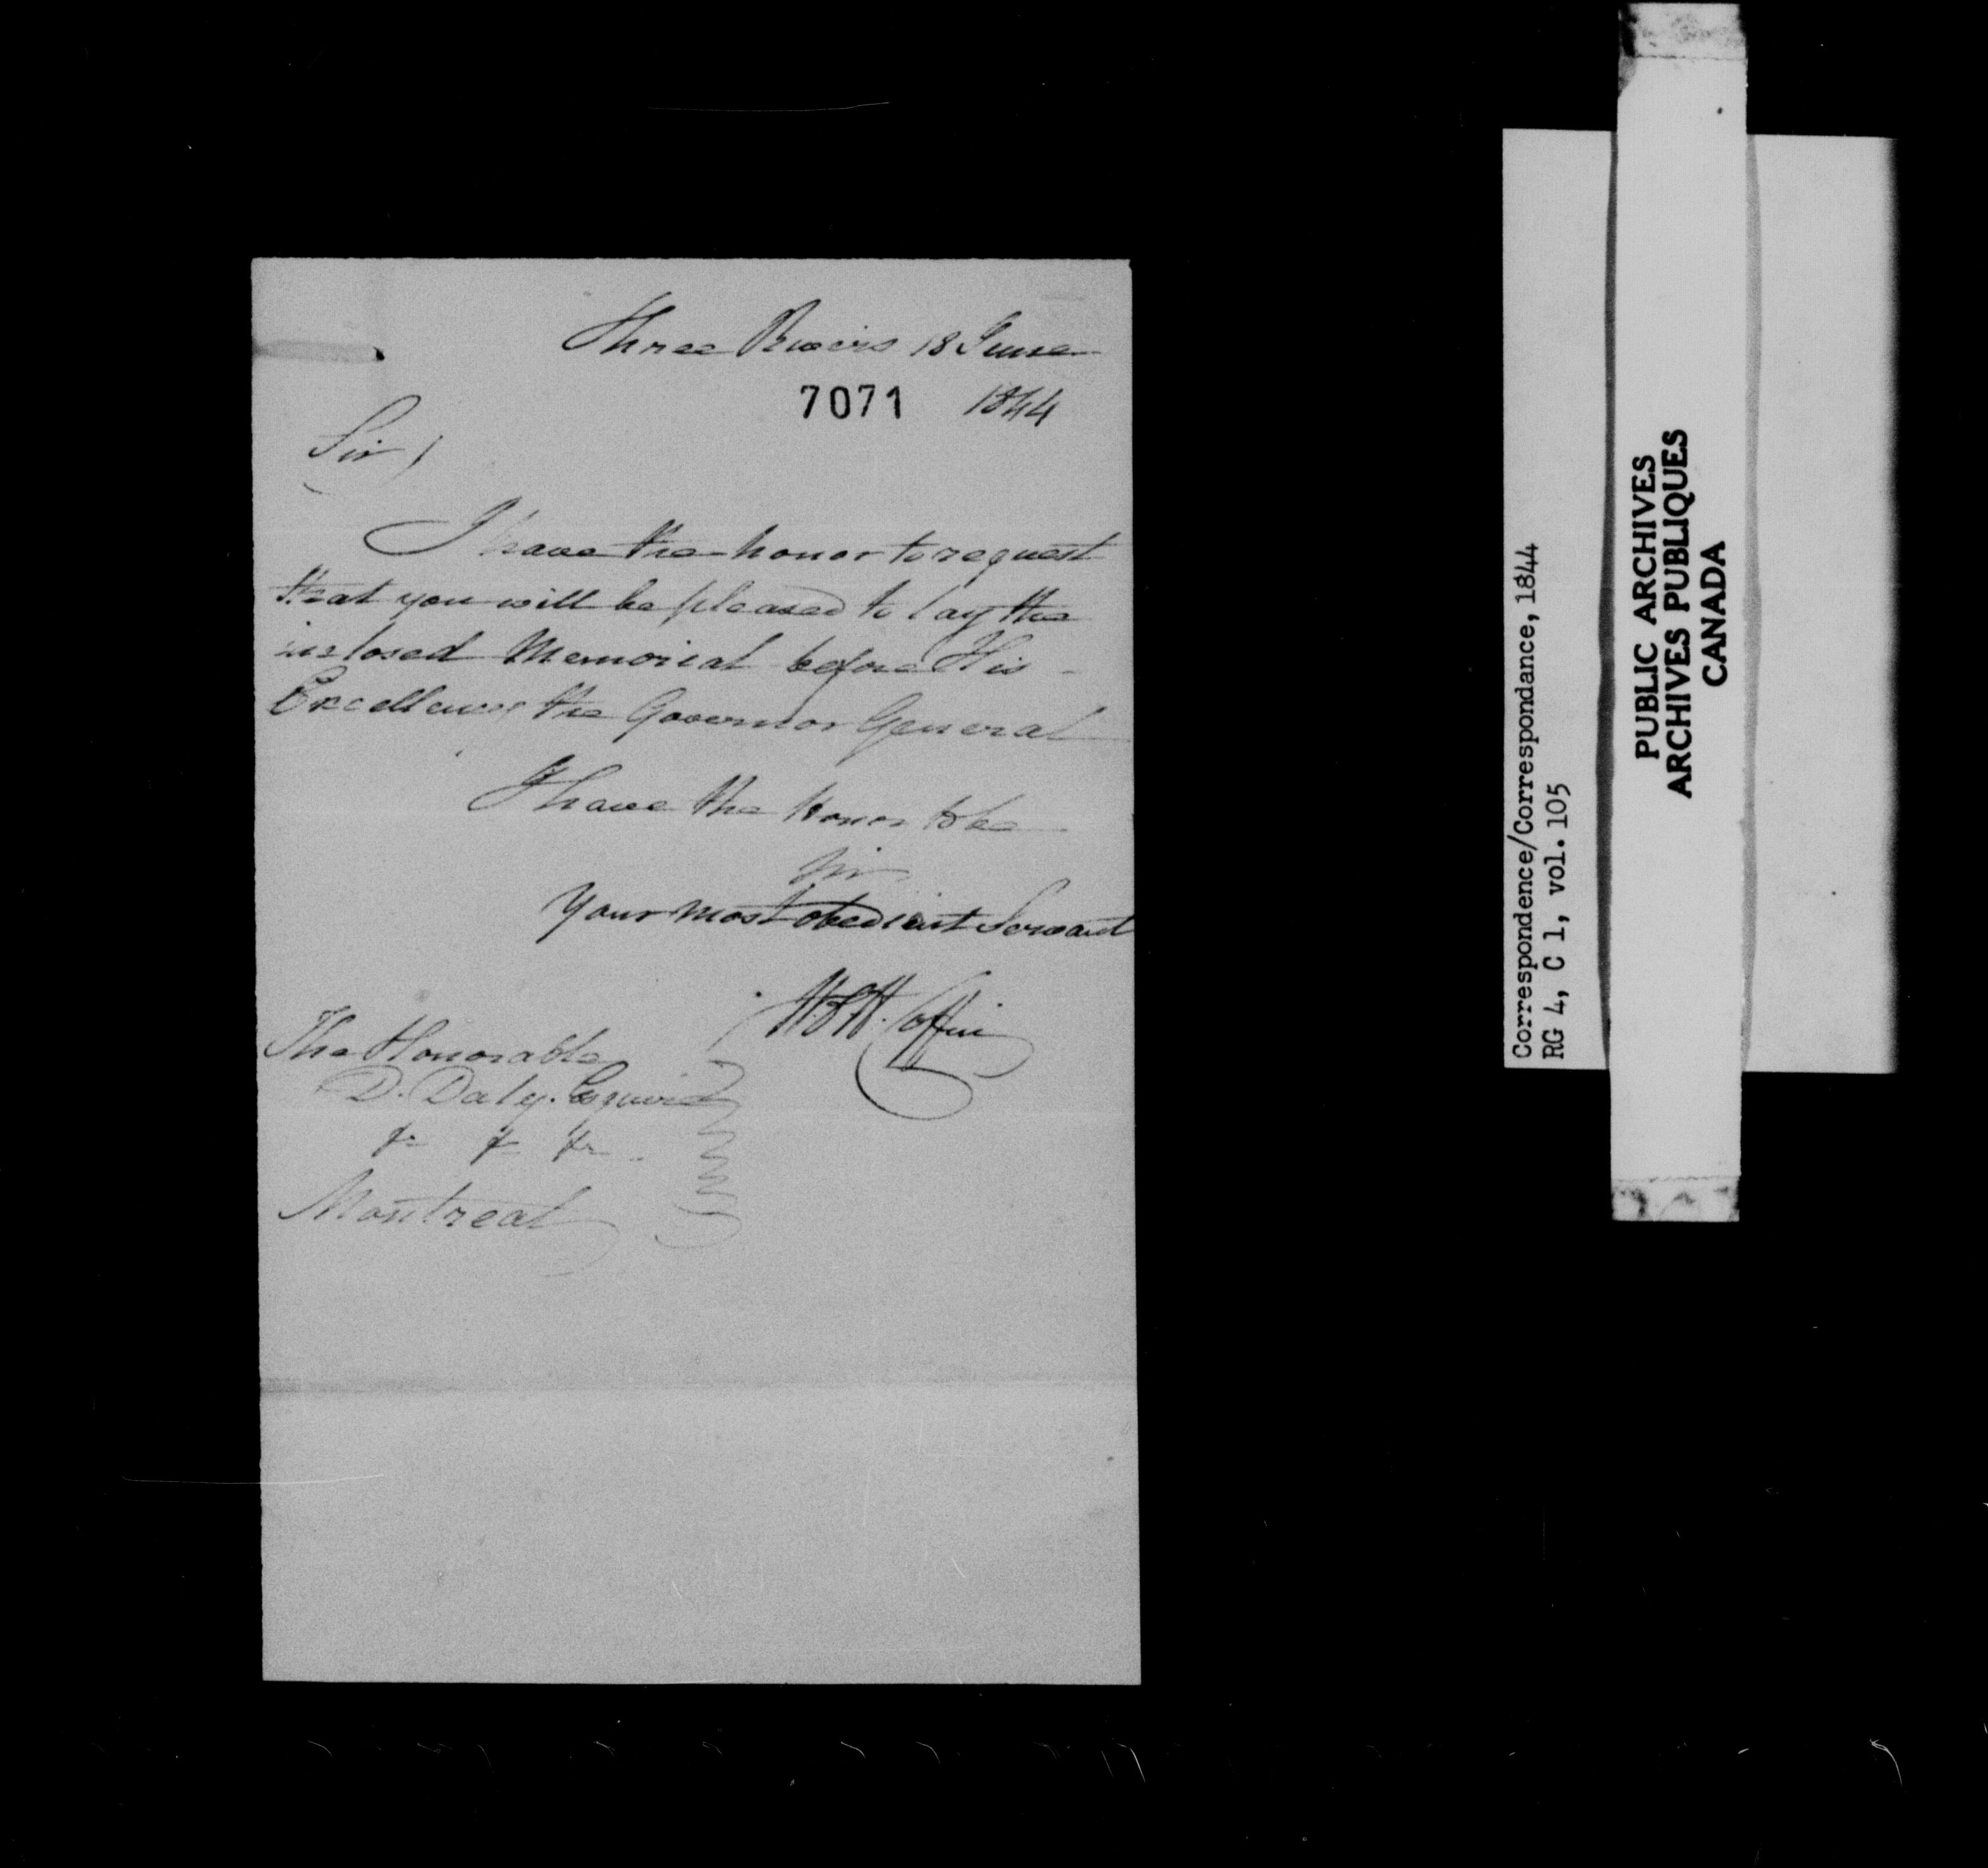 Three Rivers 18 June
7071 1844
Sir,
I have the honor to request
that you will be pleased to lay the
inclosed Memorial before His
Excellency the Governor General
I have the Honor to be
Sir
Your most obedient Servant
Coffin
The Honorable
D. Daly. Esquire
&c &c &c
Montreal
Correspondence/Correspondance, 1844
RG 4, C 1, vol. 105
PUBLIC ARCHIVES
ARCHIVES PUBLIQUES
CANADA